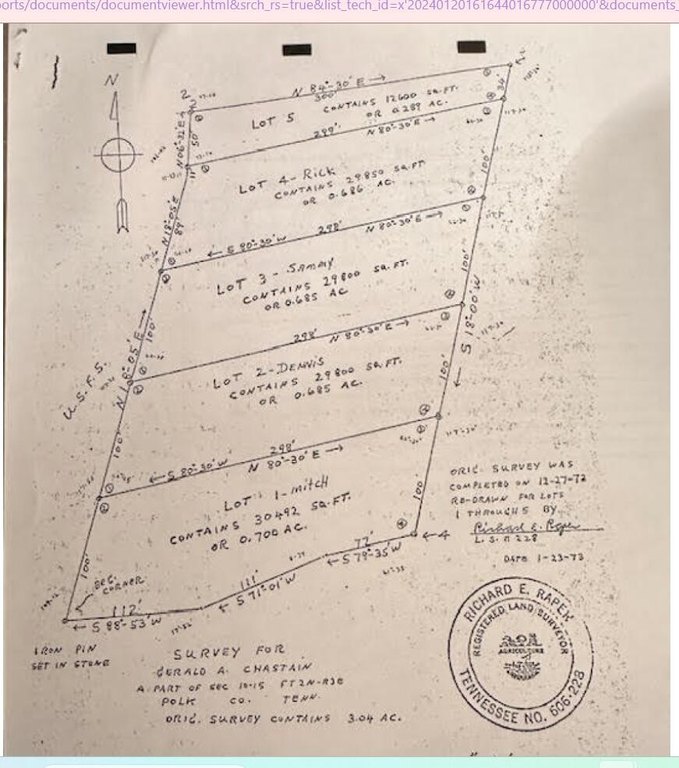 orts/documents/documentviewer.html&srch_rs=true&list_tech_id=x'20240120161644016777000000'&documents_
N
2
N 84°-30' E →
300'
LOT 5
CONTAINS 12600 SQ.FT.
OR 0.289 AC.
34'
N 06°-32' E
50'
299'
N 80°-30' E →
LOT 4-RICK
CONTAINS 29850 SQ.FT
OR 0.686 AC.
100'
N 18°-05' E
89'
← S 80°-30' W
298'
N 80°-30' E →
LOT 3 - SAMMY
CONTAINS 29800 SQ.FT.
OR 0.685 AC
100'
← S 18°-00' W
U.S.F.S.
N 18°-05' E →
100'
298'
N 80°-30' E →
LOT 2-DENNIS
CONTAINS 29800 SQ.FT.
OR 0.685 AC.
100'
100'
← S 80°-30' W
298'
N 80°-30' E →
LOT 1-MITCH
CONTAINS 30492 SQ.FT.
OR 0.700 AC.
100'
100'
BEG.
CORNER
112'
← S 88°-53' W
111'
← S 71°-01' W
72'
← S 79°-35' W
← 4
IRON PIN
SET IN STONE
ORIG. SURVEY WAS
COMPLETED ON 12-27-72
RE-DRAWN FOR LOTS
1 THROUGH 5 BY
Richard E. Roper
L.S. # 228
DATE 1-23-73
SURVEY FOR
GERALD A. CHASTAIN
A PART OF SEC 10-15 FT2N-R3E
POLK CO. TENN.
ORIG. SURVEY CONTAINS 3.04 AC.
RICHARD E. RAPER
REGISTERED LAND SURVEYOR
AGRICULTURE
TENNESSEE NO. 606-228